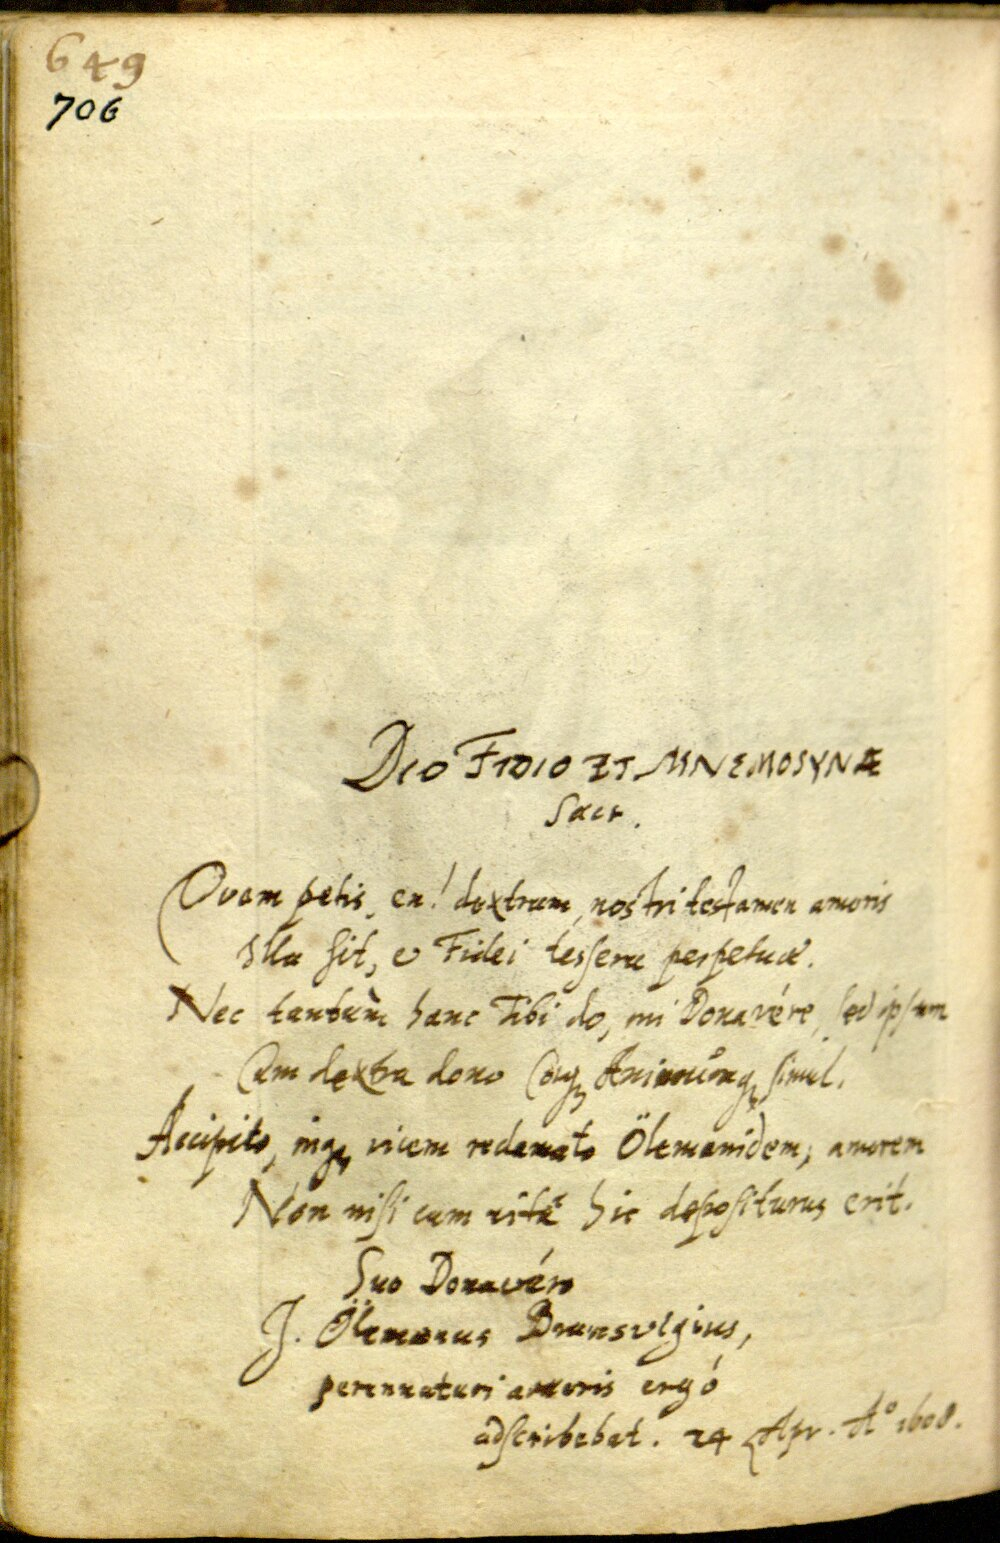 649
706
DIO FIDIO ET MNEMOSYNÆ
Sacr.
Quam petis, en! dextram, nostri testamen amoris
Illa sit, & Fidei tessera perpetuæ.
Nec tantùm hanc Tibi do, mi Donavére, sed ipsum
Cum dextra dono Corq; Animumq; simul.
Accipito, inq; vicem redamato Ölemanidem; amorem
Non nisi cum vitâ hic depositurus erit.
Suo Donavéro
J. Ölemanus Brunsvigius,
perennaturi amoris ergó
adscribebat. 24 Apr. Aº 1608.